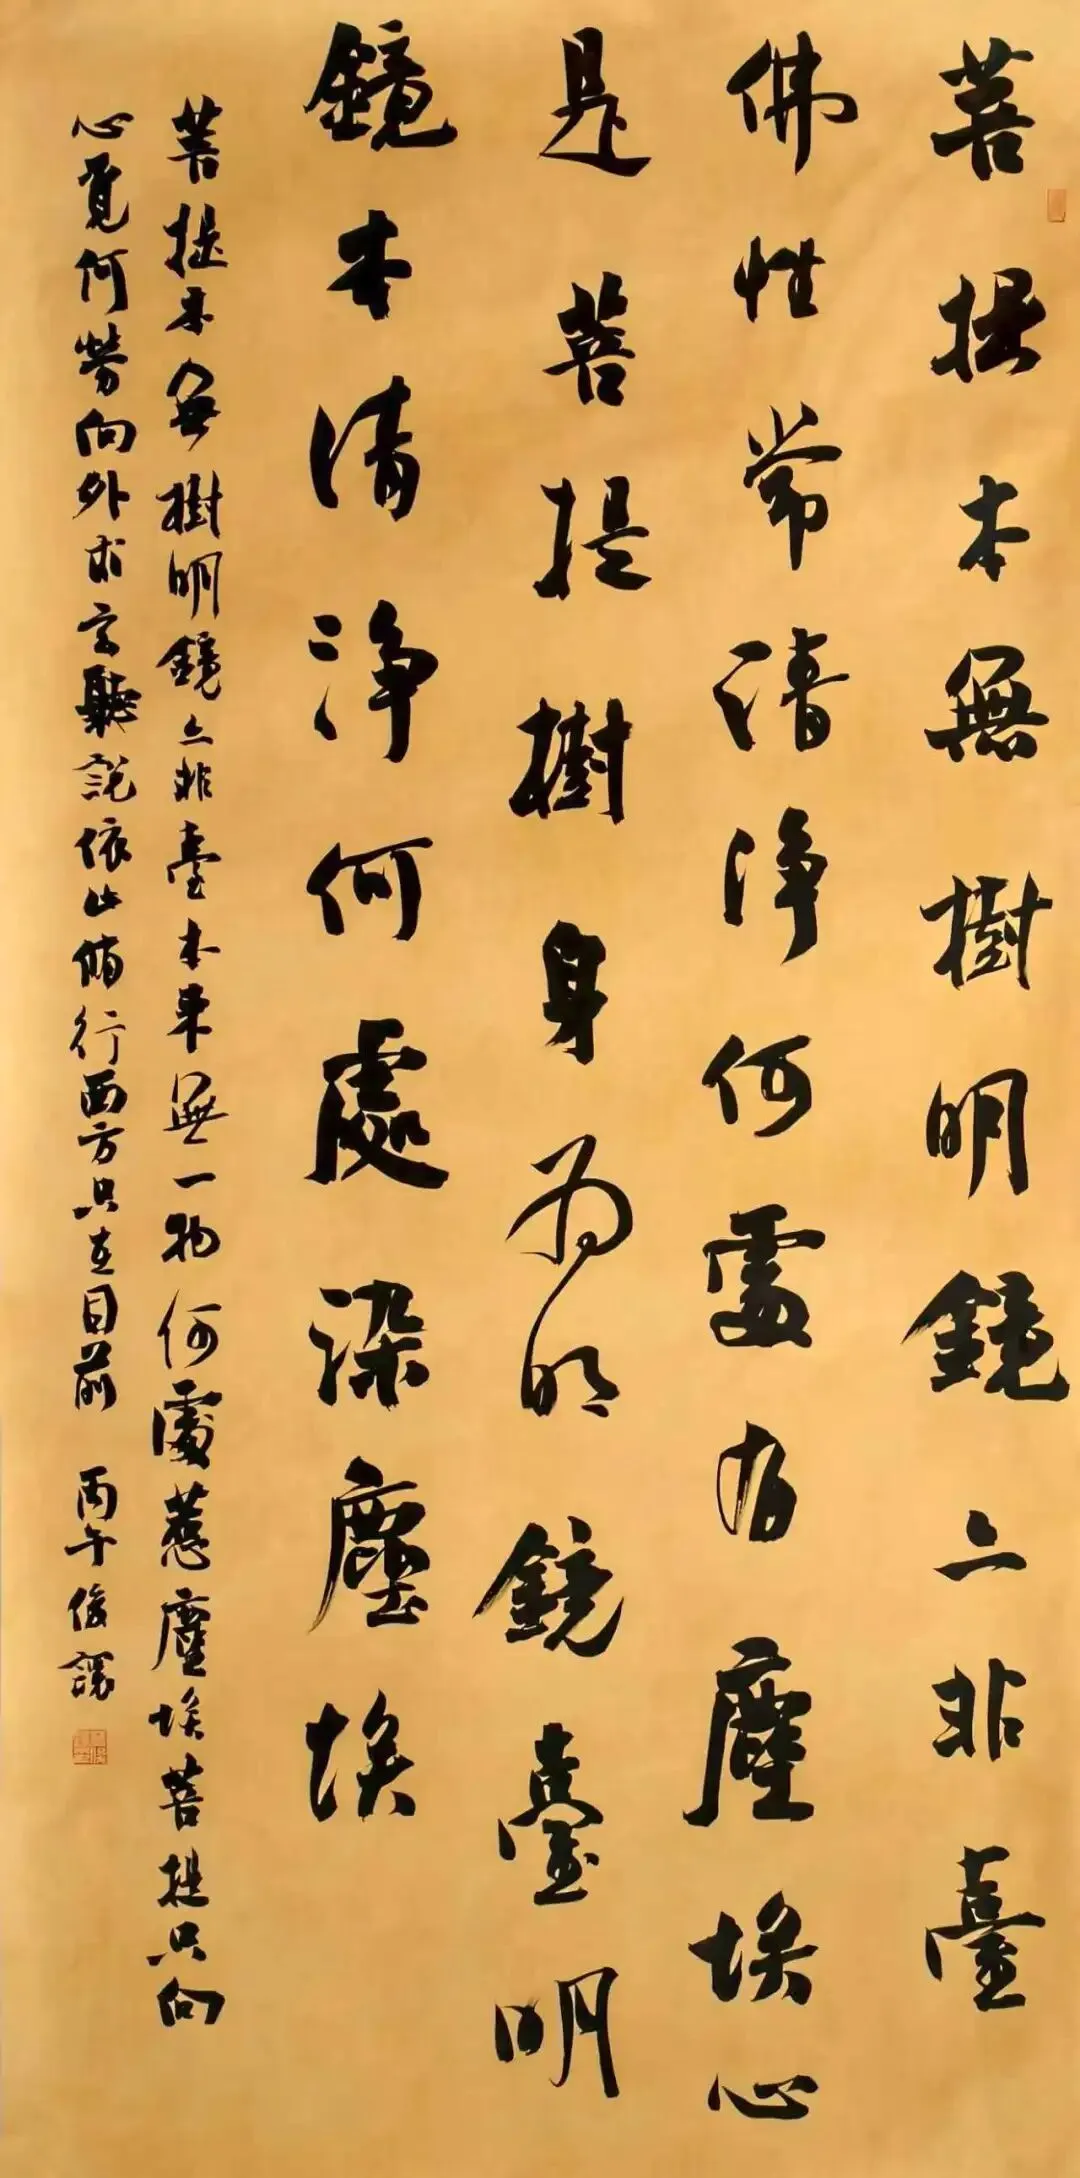 菩提本無樹明鏡亦非臺
佛性常清淨何處有塵埃心
是菩提樹身為明鏡臺明
鏡本清淨何處染塵埃
菩提本無樹明鏡亦非臺本來無一物何處惹塵埃菩提只向
心覓何勞向外求玄聽說依此修行西方只在目前 丙午俊